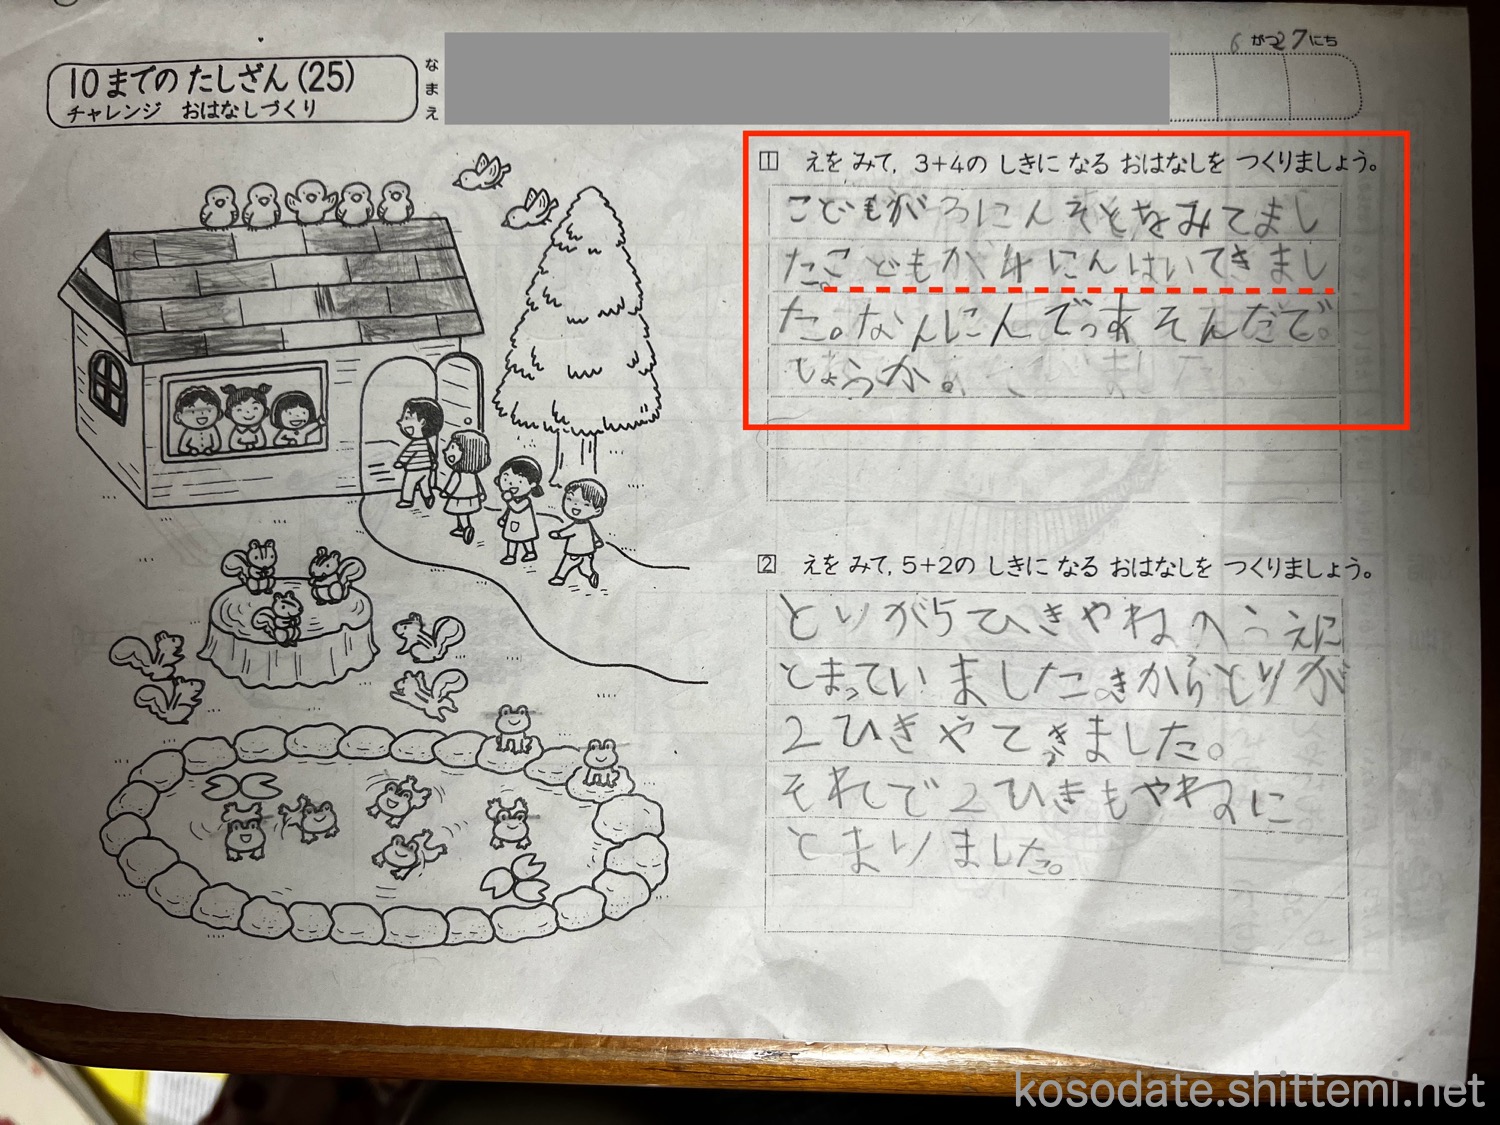 10までの たしざん(25)
チャレンジ おはなしづくり
なまえ
6がつ27にち
1 えを みて, 3+4の しきに なる おはなしを つくりましょう。
こどもが3にんそとをみてまし
た。こどもが4にんはいてきまし
た。なんにんであそんだで
しょうか。
2 えを みて, 5+2の しきに なる おはなしを つくりましょう。
とりが5ひきやねのうえに
とまっていました。きからとりが
2ひきやてきました。
それで2ひきもやねに
とまりました。
kosodate.shittemi.net